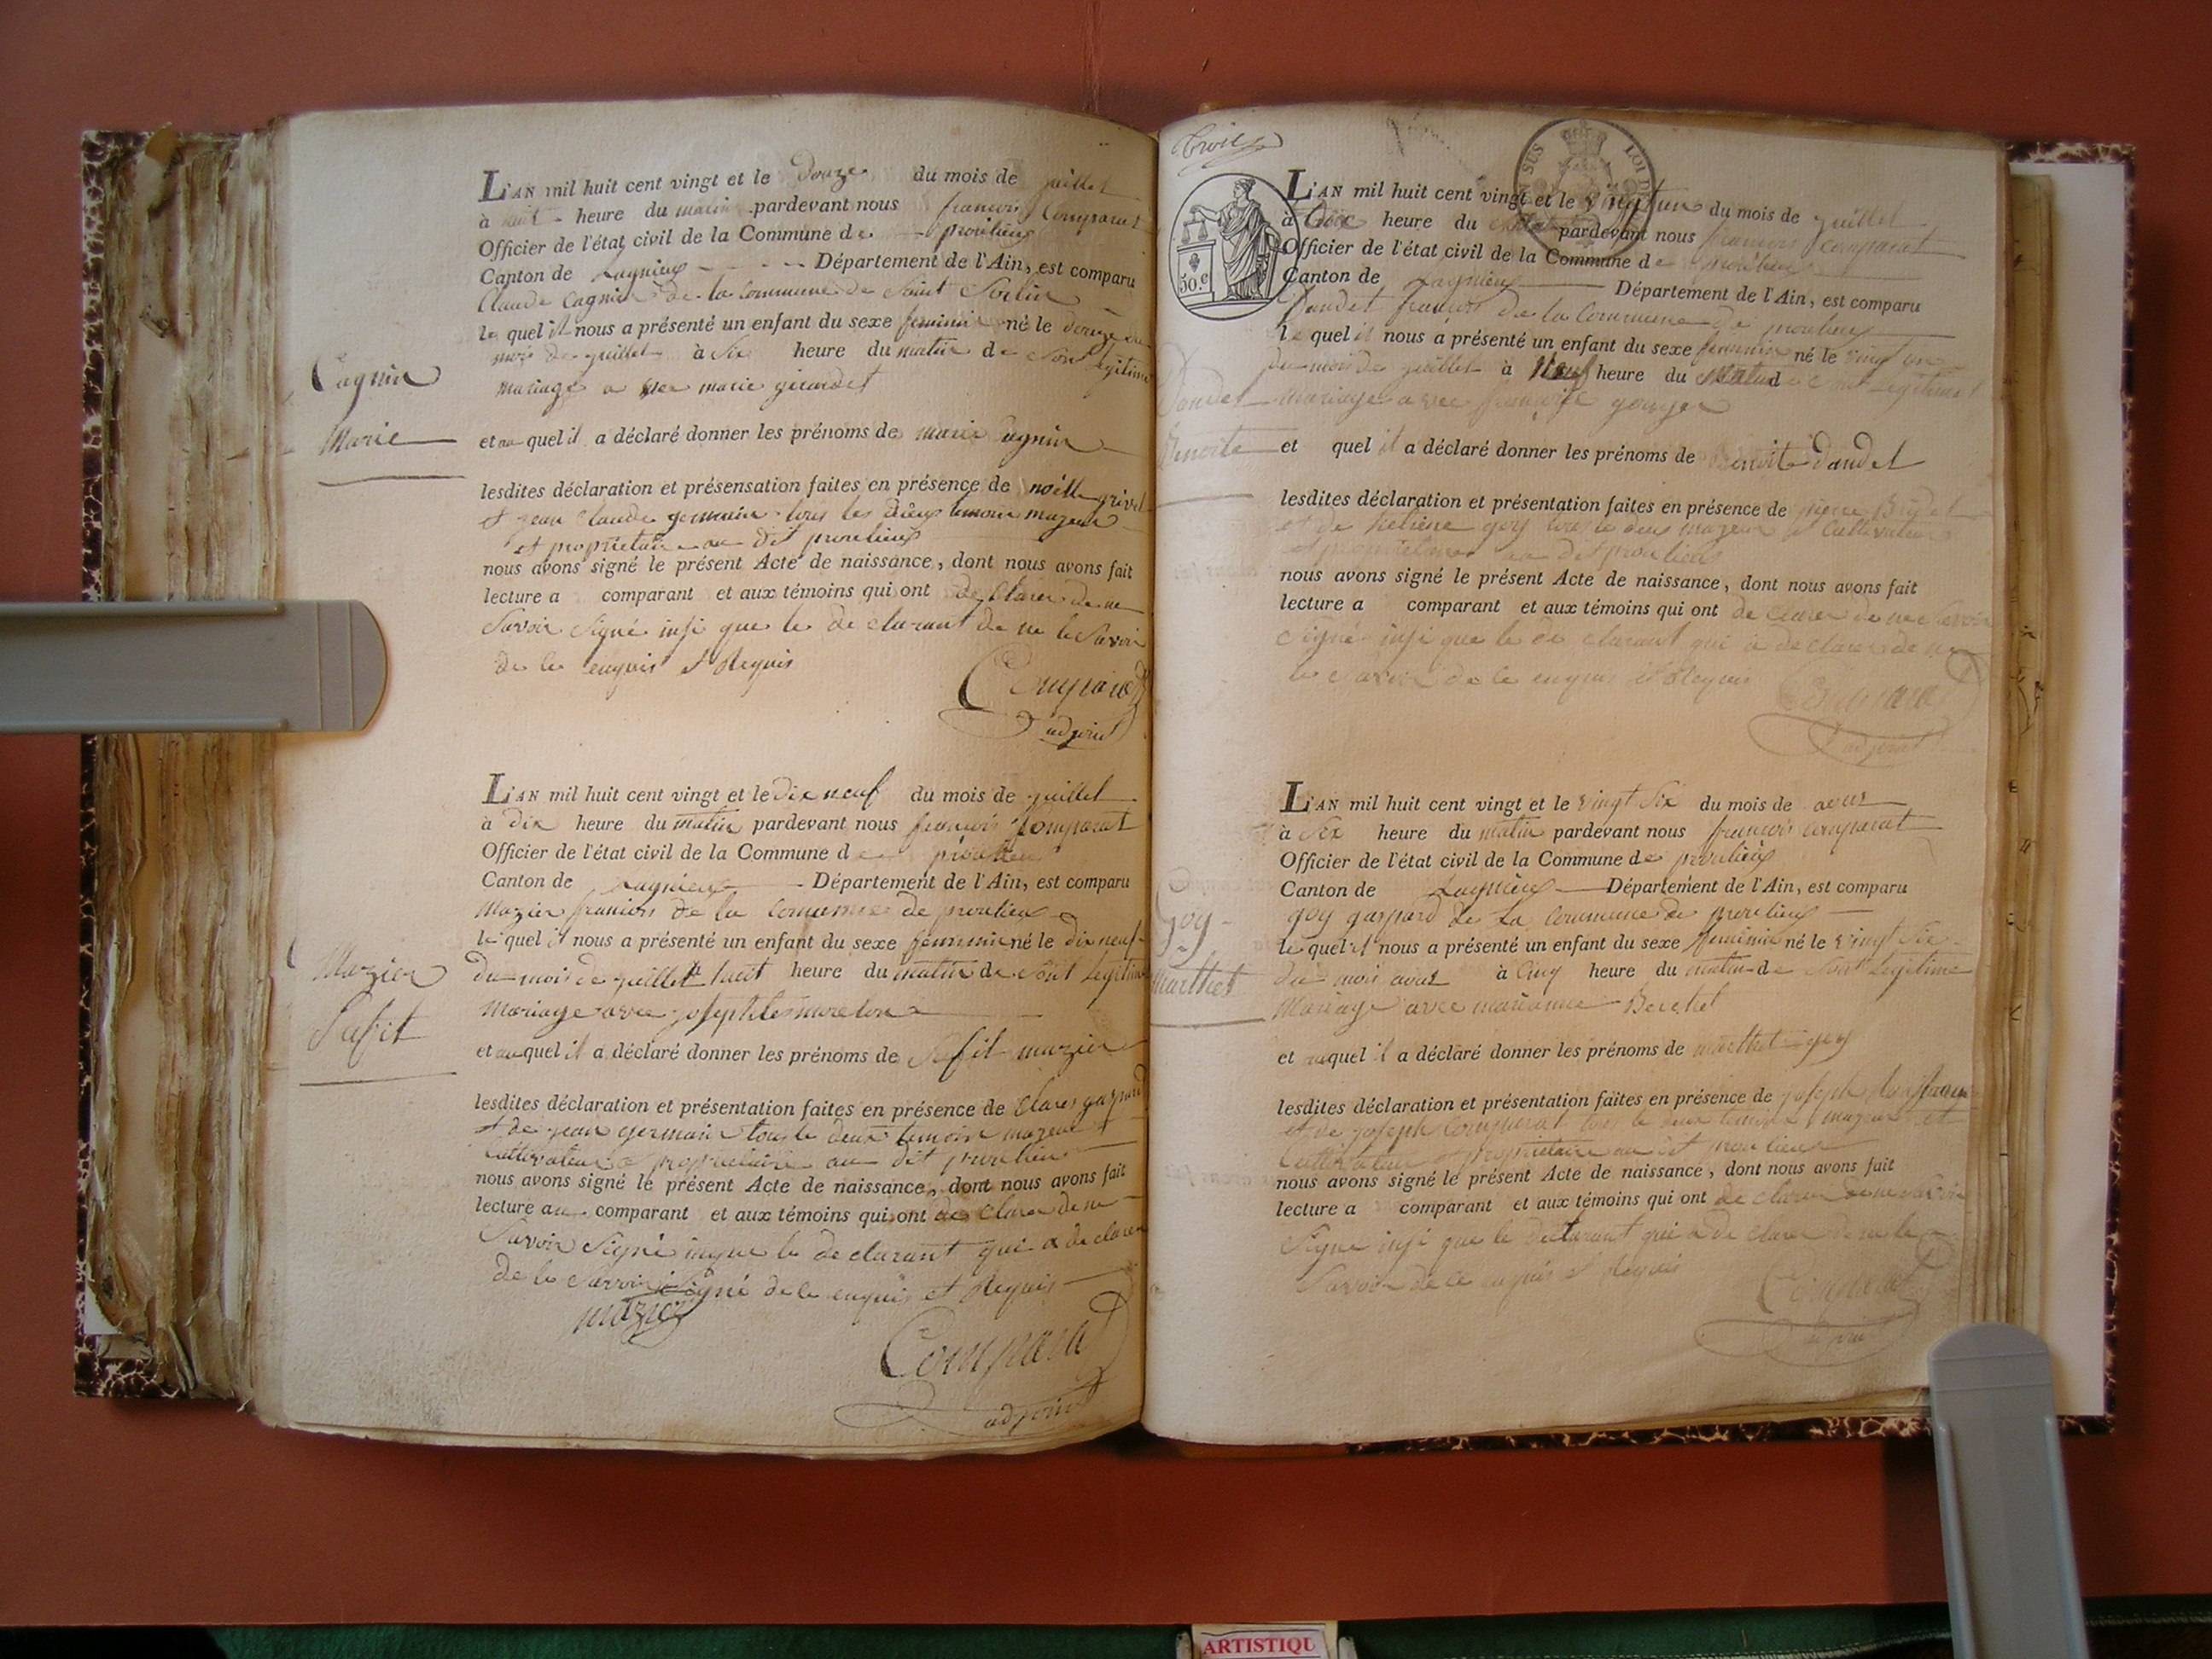 L'AN mil huit cent vingt et le Douze du mois de juillet
à huit heure du matin pardevant nous francois Comparat
Officier de l'état civil de la Commune de proulieux
Canton de Lagnieux Département de l'Ain, est comparu
Claude Cagnin de la Commune de Saint Sorlin
le quel il nous a présenté un enfant du sexe feminin né le douze du
mois de juillet à Six heure du matin de Son Legitime
mariage avec marie girardet
Cagnin
Marie
et au quel il a déclaré donner les prénoms de marie Cagnin
lesdites déclaration et présensation faites en présence de noëlle grivel
et jean Claude germain tous les deux temoin majeur
et propriétaire au dit proulieux
nous avons signé le présent Acte de naissance, dont nous avons fait
lecture a comparant et aux témoins qui ont de Clarer de ne
Savoir Signé insi que le de clarant de ne le Savoir
de ce enquis et Requis
Comparat
adjoint
L'AN mil huit cent vingt et le Dix neuf du mois de juillet
à Dix heure du matin pardevant nous francois Comparat
Officier de l'état civil de la Commune de proulieu
Canton de Lagnieux Département de l'Ain, est comparu
Mazier francios de la Commune de proulieux
le quel il nous a présenté un enfant du sexe feminin né le dix neuf
du mois de juillet à huit heure du matin de Sont Legitime
Mariage avec josephte morelon
Mazier
Sufit
et auquel il a déclaré donner les prénoms de Sufit mazier
lesdites déclaration et présentation faites en présence de Claret gaspard
et de jean germain tous le deux temoin majeur et
Cultivateur et propriétaire au dit proulieux
nous avons signé le présent Acte de naissance, dont nous avons fait
lecture au comparant et aux témoins qui ont de Clarer de ne
Savoir Signé inque le de clarant qui a de clarer
de le Savoir Signé de le enquis et Requis
mazier
Comparat
adjoint
Trois
SUS LOI
30.C
L'AN mil huit cent vingt et le vingt un du mois de juillet
à Dix heure du matin pardevant nous francois comparat
Officier de l'état civil de la Commune de proulieux
Canton de Lagnieux Département de l'Ain, est comparu
Dandel francois de la Commune de proulieux
le quel il nous a présenté un enfant du sexe feminin né le vingt un
du mois de juillet à Neuf heure du Matin de Sont Legitime
Dandel
mariage avec
Benoite
et quel il a déclaré donner les prénoms de Benoite Dandel
lesdites déclaration et présentation faites en présence de
et de goy tous le deux majeur et Cultivateur
et propriétaire au dit proulieux
nous avons signé le présent Acte de naissance, dont nous avons fait
lecture a comparant et aux témoins qui ont de Clarer de ne Savoir
Signé insi que le de clarant qui a de clarer de ne
le Savoir de le enquis et Requis
Comparat
adjoint
L'AN mil huit cent vingt et le vingt Six du mois de aout
à Six heure du matin pardevant nous francois comparat
Officier de l'état civil de la Commune de proulieux
Canton de Lagnieux Département de l'Ain, est comparu
goy gaspard de La Commune de proulieux
le quel il nous a présenté un enfant du sexe feminin né le vingt Six
du mois aout à Cinq heure du matin de Sont Legitime
Mariage avec marianne Berchet
Goy
Marthet
et auquel il a déclaré donner les prénoms de marthet goy
lesdites déclaration et présentation faites en présence de joseph
et de joseph Comparat tous le deux temoin majeur et
Cultivateur et propriétaire au dit proulieux
nous avons signé le présent Acte de naissance, dont nous avons fait
lecture a comparant et aux témoins qui ont de clarer de ne Savoir
Signé insi que le declarant qui a de clarer de ne le
Savoir de ce enquis et Requis
Comparat
adjoint
ARTISTIQU